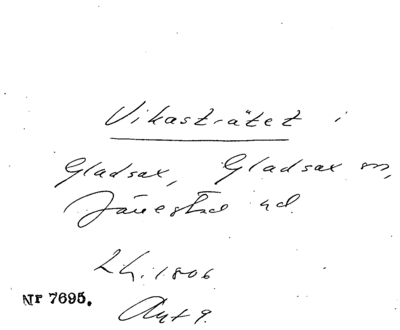 Vikasträtet i
Gladsax, Gladsax sn,
Järrestad hd.
Lh. 1806
Nr 7695.
Avt 9.